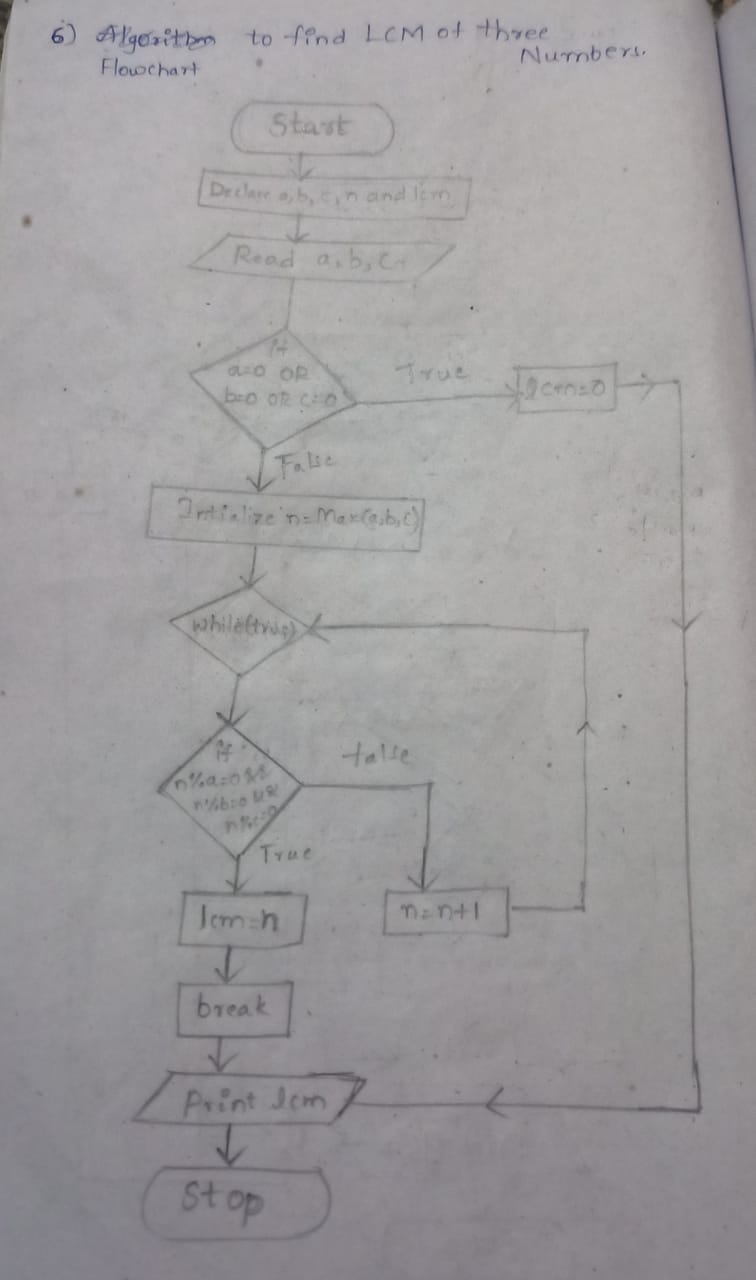 6) Algorithm to find LCM of three
Numbers.
Flowchart
Start
Declare a, b, c, n and lcm
Read a, b, c
if
a=0 OR
b=0 OR c=0
True
lcm=0
False
Initialize n=Max(a,b,c)
while(true)
if
n%a=0 &&
n%b=0 &&
n%c=0
false
True
lcm=n
n=n+1
break
Print lcm
Stop